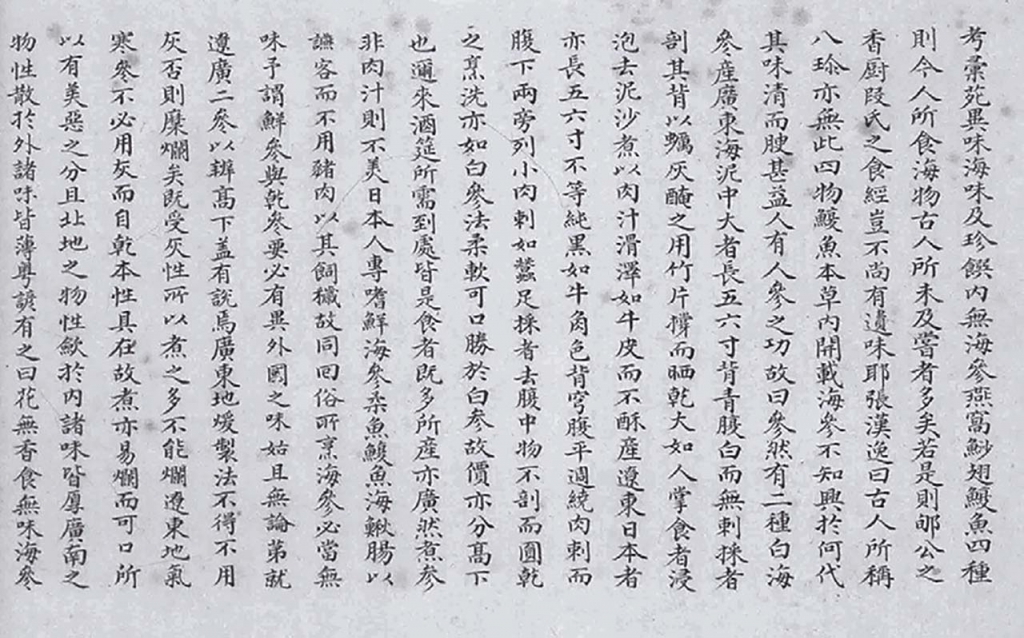 考彙苑異味海味及珍饌內無海參燕窩鯋翅鰒魚四種
則今人所食海物古人所未及嘗者多矣若是則郇公之
香廚段氏之食經豈不尚有遺味耶張漢逸曰古人所稱
八珍亦無此四物鰒魚本草內開載海參不知興於何代
其味清而腴甚益人有人參之功故曰參然有二種白海
參產廣東海泥中大者長五六寸背青腹白而無刺採者
剖其背以蠣灰醃之用竹片撐而晒乾大如人掌食者浸
泡去泥沙煮以肉汁滑澤如牛皮而不酥產遼東日本者
亦長五六寸不等純黑如牛角色背穹腹平週繞肉刺而
腹下兩旁列小肉刺如蠶足採者去腹中物不剖而圓乾
之烹洗亦如白參法柔軟可口勝於白參故價亦分高下
也邇來酒筵所需到處皆是食者既多所產亦廣然煮參
非肉汁則不美日本人專嗜鮮海參柔魚鰒魚海鰍腸以
讌客而不用豬肉以其飼穢故同回俗所烹海參必當無
味予謂鮮參與乾參要必有異外國之味姑且無論第就
遼廣二參以辨高下蓋有說焉廣東地煖製法不得不用
灰否則糜爛矣既受灰性所以煮之多不能爛遼東地氣
寒參不必用灰而自乾本性具在故煮亦易爛而可口所
以有美惡之分且北地之物性歛於內諸味皆厚廣南之
物性散於外諸味皆薄粵諺有之曰花無香食無味海參